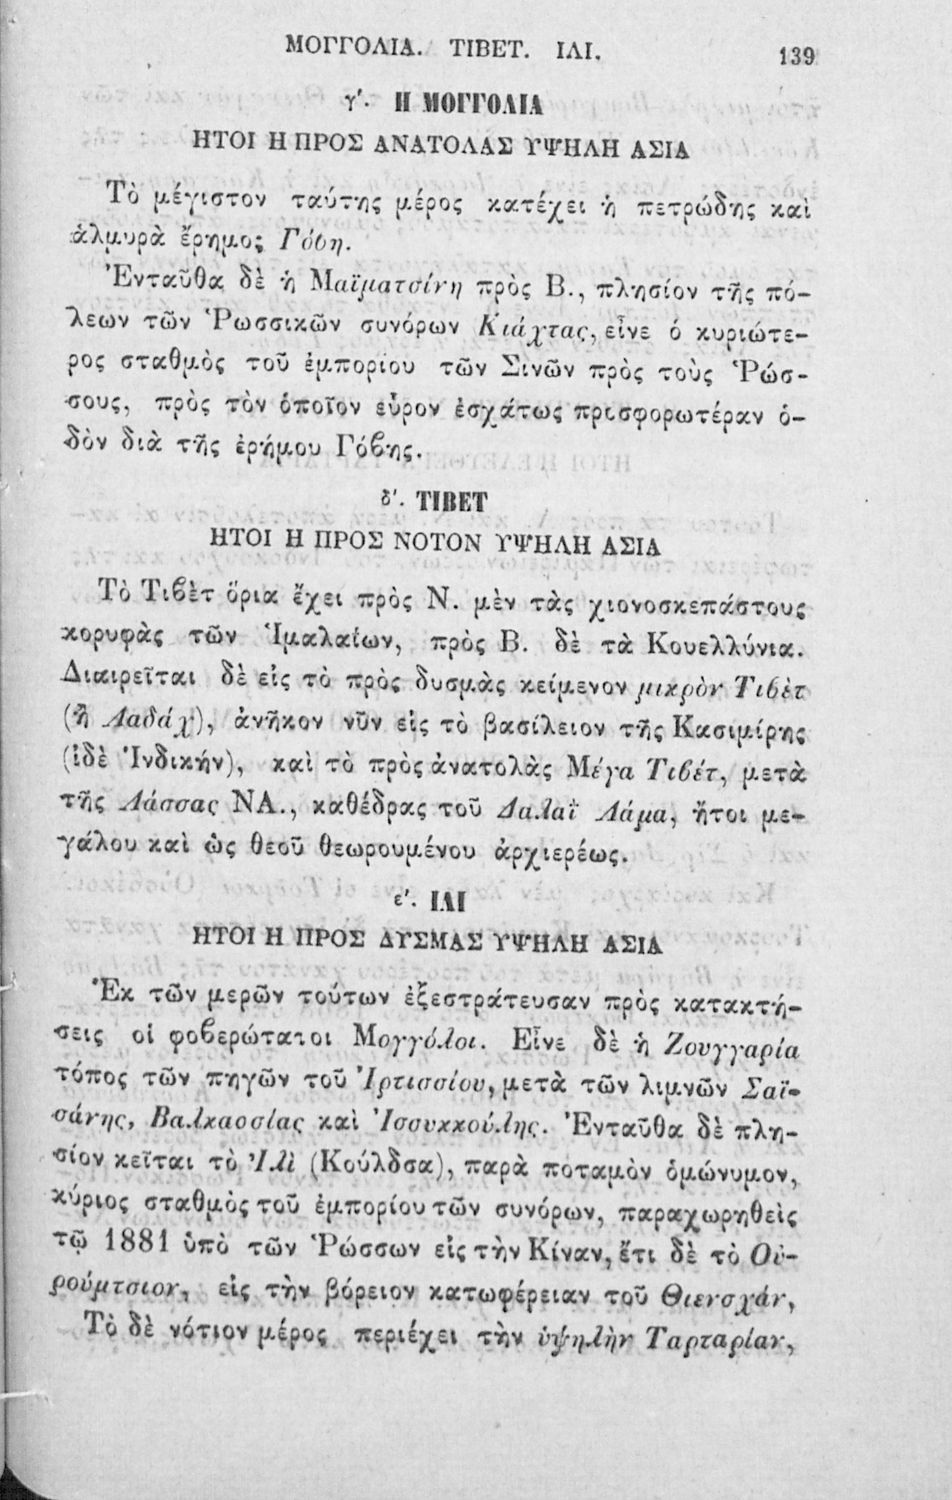 ΜΟΓΓΟΛΙΑ. ΤΙΒΕΤ. ΙΛΙ. 139
γ'. Η ΜΟΓΓΟΛΙΑ
ΗΤΟΙ Η ΠΡΟΣ ΑΝΑΤΟΛΑΣ ΥΨΗΛΗ ΑΣΙΑ
Τὸ μέγιστον ταύτης μέρος κατέχει ἡ πετρώδης καὶ
ἁλμυρὰ ἔρημος Γόϐη.
Ἐνταῦθα δὲ ἡ Μαϊματσίνη πρὸς Β., πλησίον τῆς πό-
λεων τῶν Ῥωσσικῶν συνόρων Κιάχτας, εἶνε ὁ κυριώτε-
ρος σταθμὸς τοῦ ἐμπορίου τῶν Σινῶν πρὸς τοὺς Ῥώσ-
σους, πρὸς τὸν ὁποῖον εὗρον ἐσχάτως προσφορωτέραν ὁ-
δὸν διὰ τῆς ἐρήμου Γόϐης.
δ'. ΤΙΒΕΤ
ΗΤΟΙ Η ΠΡΟΣ ΝΟΤΟΝ ΥΨΗΛΗ ΑΣΙΑ
Τὸ Τιϐὲτ ὅρια ἔχει πρὸς Ν. μὲν τὰς χιονοσκεπάστους
κορυφὰς τῶν Ἱμαλαίων, πρὸς Β. δὲ τὰ Κουελλύνια.
Διαιρεῖται δὲ εἰς τὸ πρὸς δυσμὰς κείμενον μικρὸν Τιϐὲτ
(ἢ Λαδάχ), ἀνῆκον νῦν εἰς τὸ βασίλειον τῆς Κασιμίρης
(ἰδὲ Ἰνδικήν), καὶ τὸ πρὸς ἀνατολὰς Μέγα Τιϐέτ, μετὰ
τῆς Λάσσας ΝΑ., καθέδρας τοῦ Δαλαῒ Λάμα, ἤτοι με-
γάλου καὶ ὡς θεοῦ θεωρουμένου ἀρχιερέως.
ε'. ΙΛΙ
ΗΤΟΙ Η ΠΡΟΣ ΔΥΣΜΑΣ ΥΨΗΛΗ ΑΣΙΑ
Ἐκ τῶν μερῶν τούτων ἐξεστράτευσαν πρὸς κατακτή-
σεις οἱ φοϐερώτατοι Μογγόλοι. Εἶνε δὲ ἡ Ζουγγαρία
τόπος τῶν πηγῶν τοῦ Ἰρτισσίου, μετὰ τῶν λιμνῶν Σαϊ-
σάνης, Βαλκαοσίας καὶ Ἰσσυκκούλης. Ἐνταῦθα δὲ πλη-
σίον κεῖται τὸ Ἰλὶ (Κούλδσα), παρὰ ποταμὸν ὁμώνυμον,
κύριος σταθμὸς τοῦ ἐμπορίου τῶν συνόρων, παραχωρηθεὶς
τῷ 1881 ὑπὸ τῶν Ῥώσσων εἰς τὴν Κίναν, ἔτι δὲ τὸ Οὐ-
ρούμτσιον, εἰς τὴν βόρειον κατωφέρειαν τοῦ Θιενσχάν,
Τὸ δὲ νότιον μέρος περιέχει τὴν ὑψηλὴν Ταρταρίαν,